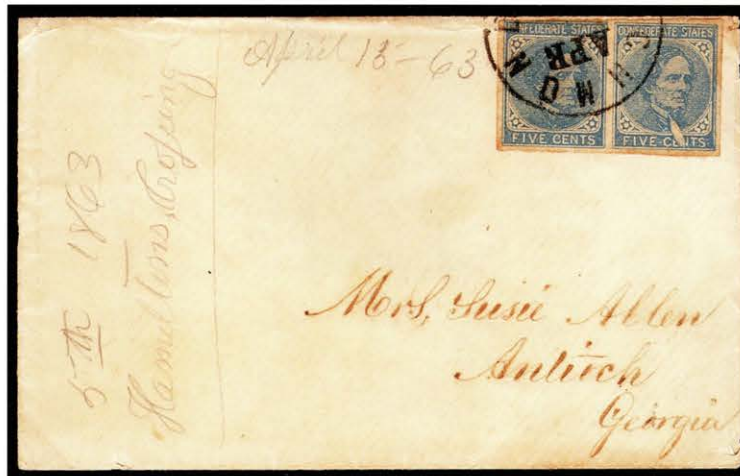 April 15 - 63
CONFEDERATE STATES
CONFEDERATE STATES
APR
FIVE CENTS
FIVE CENTS
5th 1863
Hamiltons Crossing
Mrs, Susie Allen
Antioch
Georgia